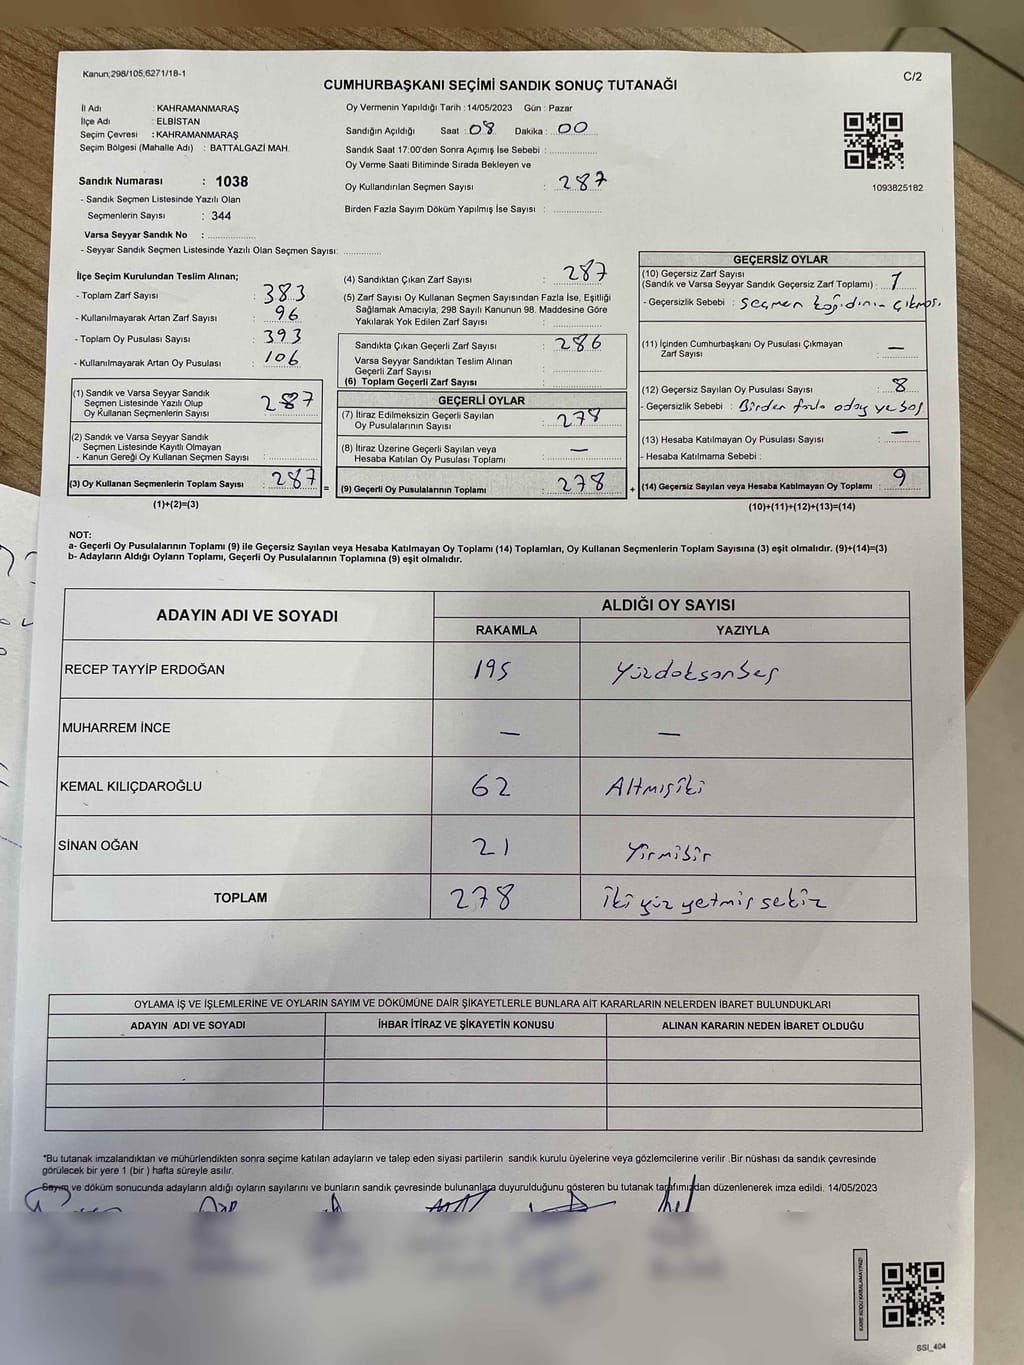 Kanun;298/105;6271/18-1
C/2
CUMHURBAŞKANI SEÇİMİ SANDIK SONUÇ TUTANAĞI
İl Adı : KAHRAMANMARAŞ
İlçe Adı : ELBİSTAN
Seçim Çevresi : KAHRAMANMARAŞ
Seçim Bölgesi (Mahalle Adı) : BATTALGAZİ MAH.
Sandık Numarası : 1038
- Sandık Seçmen Listesinde Yazılı Olan
Seçmenlerin Sayısı : 344
Varsa Seyyar Sandık No :
- Seyyar Sandık Seçmen Listesinde Yazılı Olan Seçmen Sayısı:
Oy Vermenin Yapıldığı Tarih : 14/05/2023 Gün : Pazar
Sandığın Açıldığı Saat : 08 Dakika : 00
Sandık Saat 17:00'den Sonra Açımış İse Sebebi :
Oy Verme Saati Bitiminde Sırada Bekleyen ve
Oy Kullandırılan Seçmen Sayısı : 287
Birden Fazla Sayım Döküm Yapılmış İse Sayısı :
1093825182
İlçe Seçim Kurulundan Teslim Alınan;
- Toplam Zarf Sayısı : 383
- Kullanılmayarak Artan Zarf Sayısı : 96
- Toplam Oy Pusulası Sayısı : 393
- Kullanılmayarak Artan Oy Pusulası : 106
(1) Sandık ve Varsa Seyyar Sandık
Seçmen Listesinde Yazılı Olup
Oy Kullanan Seçmenlerin Sayısı : 287
(2) Sandık ve Varsa Seyyar Sandık
Seçmen Listesinde Kayıtlı Olmayan
- Kanun Gereği Oy Kullanan Seçmen Sayısı :
(3) Oy Kullanan Seçmenlerin Toplam Sayısı : 287 =
(1)+(2)=(3)
(4) Sandıktan Çıkan Zarf Sayısı : 287
(5) Zarf Sayısı Oy Kullanan Seçmen Sayısından Fazla İse, Eşitliği
Sağlamak Amacıyla; 298 Sayılı Kanunun 98. Maddesine Göre
Yakılarak Yok Edilen Zarf Sayısı :
Sandıkta Çıkan Geçerli Zarf Sayısı : 286
Varsa Seyyar Sandıktan Teslim Alınan
Geçerli Zarf Sayısı :
(6) Toplam Geçerli Zarf Sayısı :
GEÇERLİ OYLAR
(7) İtiraz Edilmeksizin Geçerli Sayılan
Oy Pusulalarının Sayısı : 278
(8) İtiraz Üzerine Geçerli Sayılan veya
Hesaba Katılan Oy Pusulası Toplamı : —
(9) Geçerli Oy Pusulalarının Toplamı : 278 +
GEÇERSİZ OYLAR
(10) Geçersiz Zarf Sayısı
(Sandık ve Varsa Seyyar Sandık Geçersiz Zarf Toplamı) : 1
- Geçersizlik Sebebi : seçmen kağıdının çıkması
(11) İçinden Cumhurbaşkanı Oy Pusulası Çıkmayan
Zarf Sayısı : —
(12) Geçersiz Sayılan Oy Pusulası Sayısı : 8
- Geçersizlik Sebebi : Birden fazla aday ve boş
(13) Hesaba Katılmayan Oy Pusulası Sayısı : —
- Hesaba Katılmama Sebebi :
(14) Geçersiz Sayılan veya Hesaba Katılmayan Oy Toplamı : 9
(10)+(11)+(12)+(13)=(14)
NOT:
a- Geçerli Oy Pusulalarının Toplamı (9) ile Geçersiz Sayılan veya Hesaba Katılmayan Oy Toplamı (14) Toplamları, Oy Kullanan Seçmenlerin Toplam Sayısına (3) eşit olmalıdır. (9)+(14)=(3)
b- Adayların Aldığı Oyların Toplamı, Geçerli Oy Pusulalarının Toplamına (9) eşit olmalıdır.
ADAYIN ADI VE SOYADI
ALDIĞI OY SAYISI
RAKAMLA YAZIYLA
RECEP TAYYİP ERDOĞAN 195 Yüzdoksanbeş
MUHARREM İNCE — —
KEMAL KILIÇDAROĞLU 62 Altmışiki
SİNAN OĞAN 21 Yirmibir
TOPLAM 278 iki yüz yetmiş sekiz
OYLAMA İŞ VE İŞLEMLERİNE VE OYLARIN SAYIM VE DÖKÜMÜNE DAİR ŞİKAYETLERLE BUNLARA AİT KARARLARIN NELERDEN İBARET BULUNDUKLARI
ADAYIN ADI VE SOYADI İHBAR İTİRAZ VE ŞİKAYETİN KONUSU ALINAN KARARIN NEDEN İBARET OLDUĞU
*Bu tutanak imzalandıktan ve mühürlendikten sonra seçime katılan adayların ve talep eden siyasi partilerin sandık kurulu üyelerine veya gözlemcilerine verilir .Bir nüshası da sandık çevresinde
görülecek bir yere 1 (bir ) hafta süreyle asılır.
Sayım ve döküm sonucunda adayların aldığı oyların sayılarını ve bunların sandık çevresinde bulunanlara duyurulduğunu gösteren bu tutanak tarafımızdan düzenlenerek imza edildi. 14/05/2023
KARE KODU KARALAMAYINIZ!
SSI_404